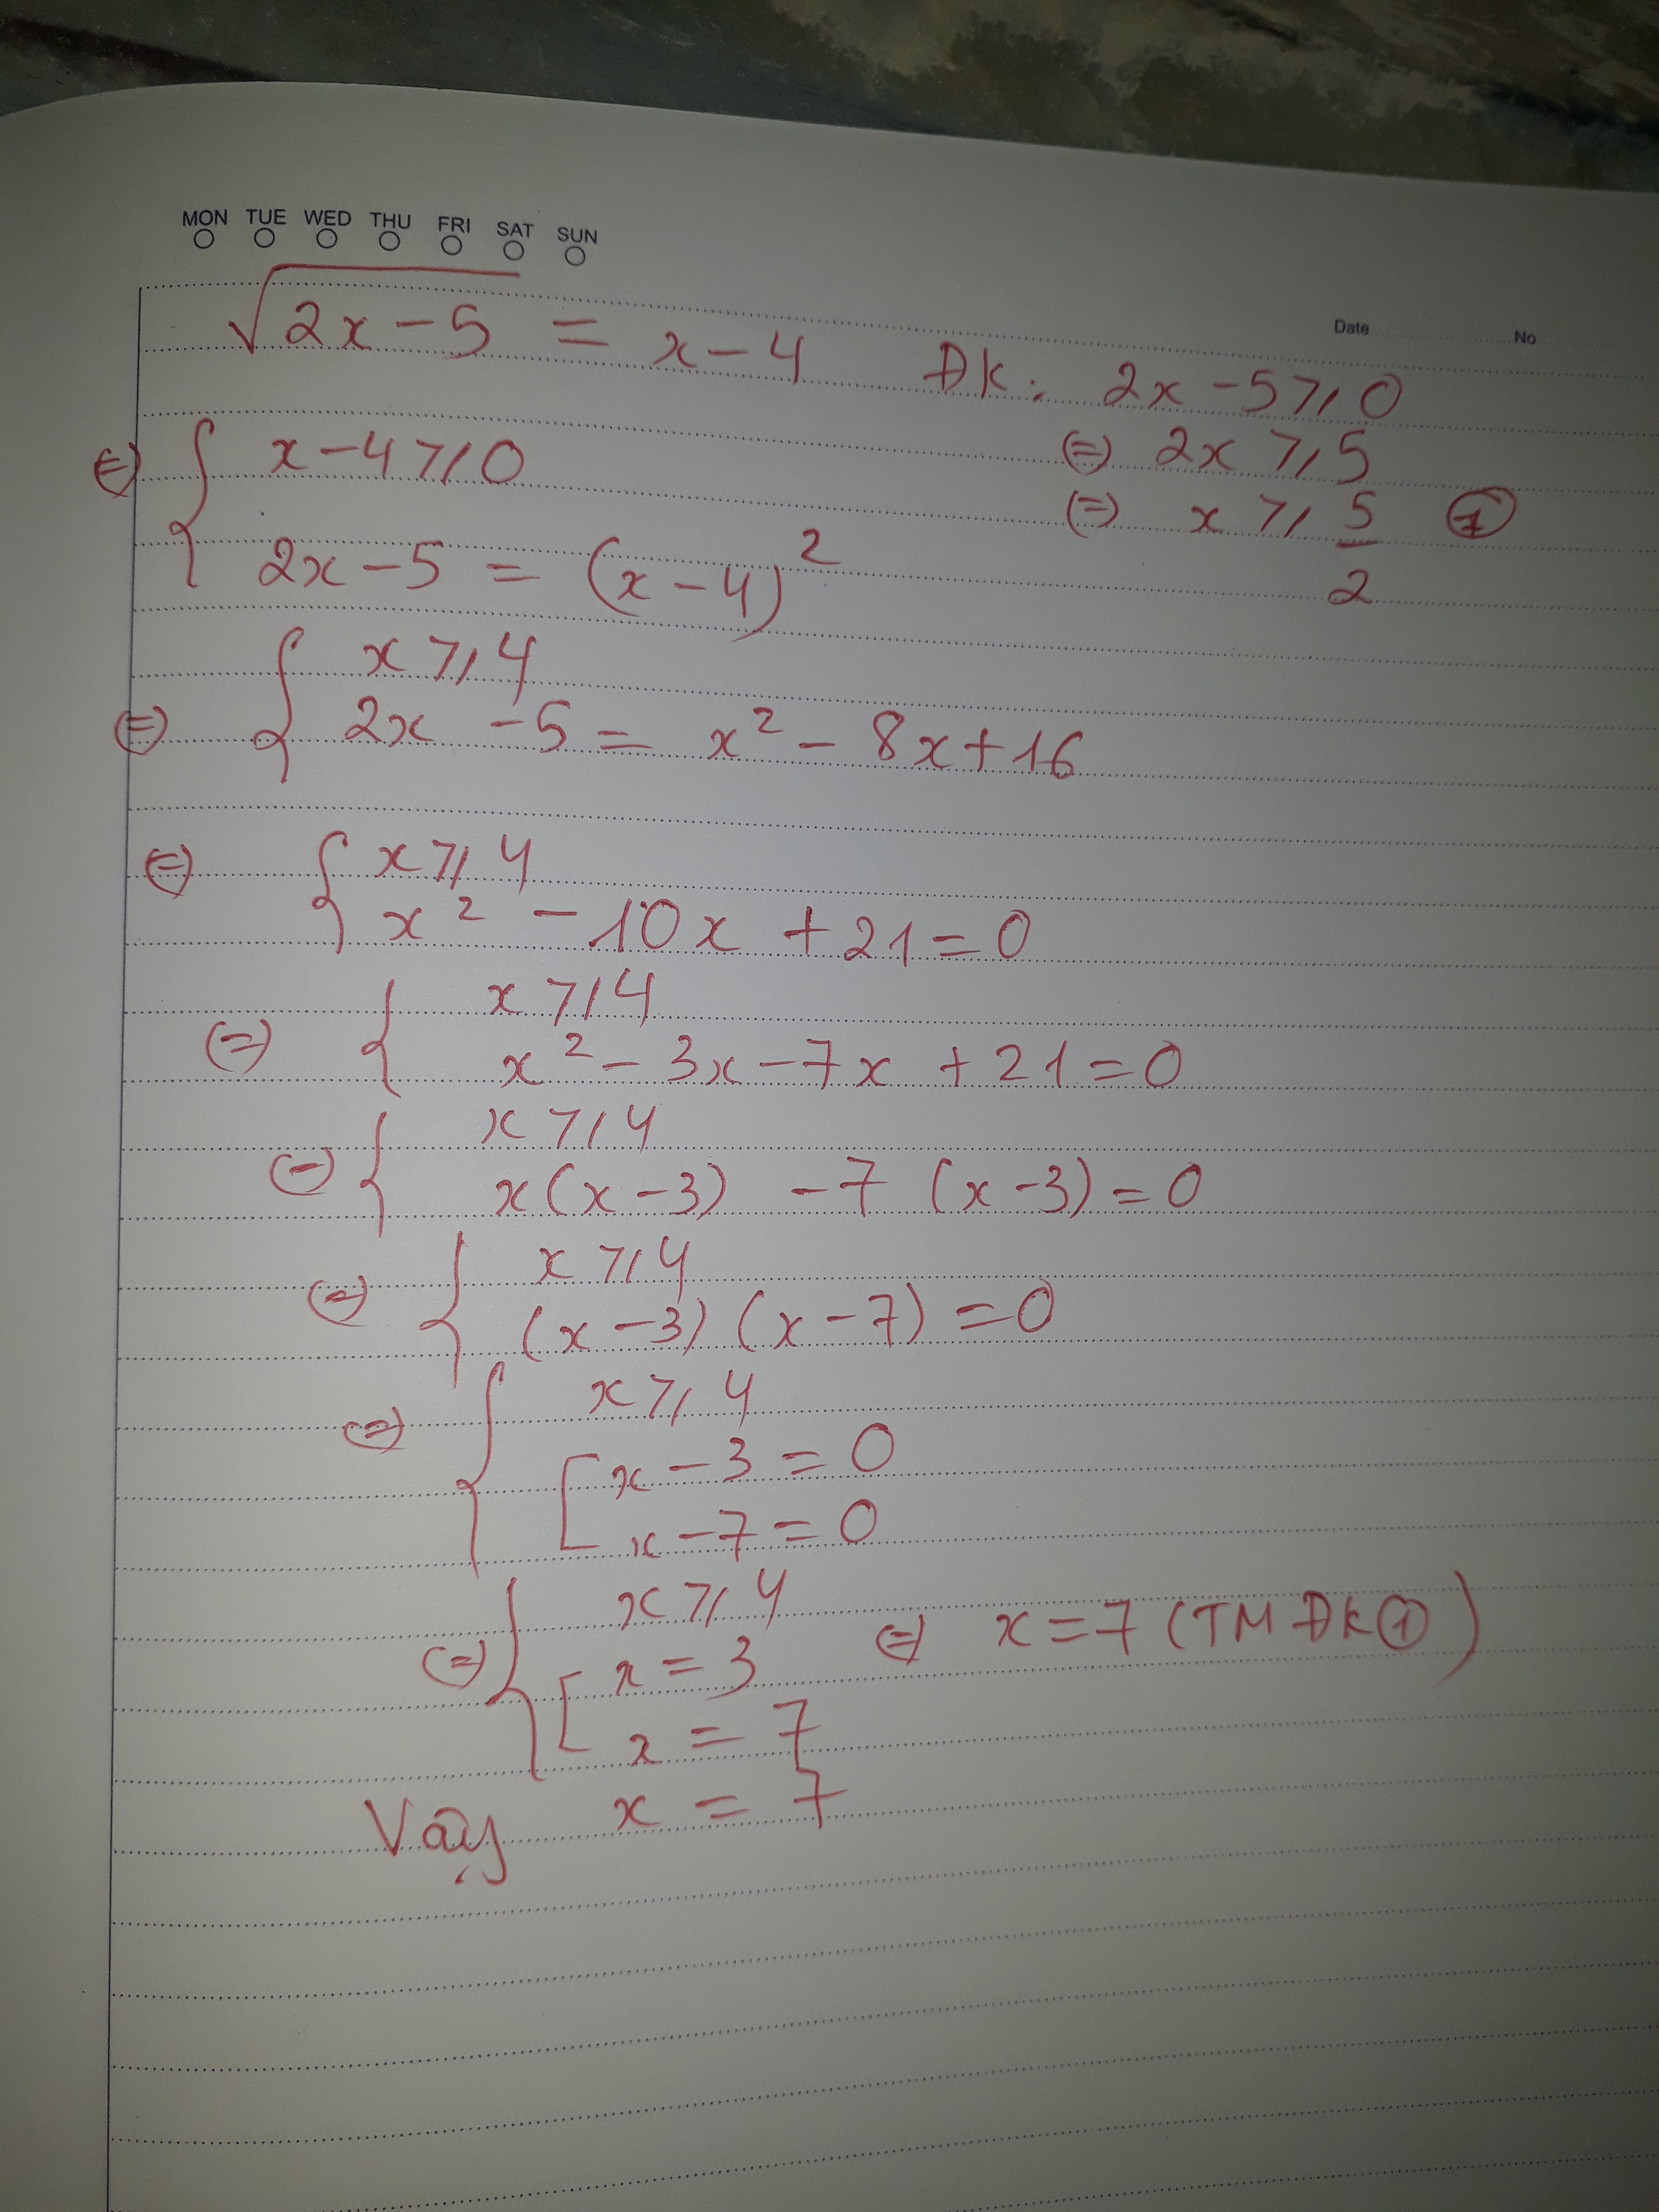 MON TUE WED THU FRI SAT SUN
Date No
√(2x-5) = x-4 ĐK: 2x-5 ≥ 0
(=) 2x ≥ 5
(=) x ≥ 5/2 ①
(=) { x-4 ≥ 0
2x-5 = (x-4)²
(=) { x ≥ 4
2x -5 = x² - 8x+16
(=) { x ≥ 4
x² - 10x +21=0
(=) { x ≥ 4
x² - 3x -7x +21=0
(=) { x ≥ 4
x(x-3) -7 (x-3)=0
(=) { x ≥ 4
(x-3)(x-7)=0
(=) { x ≥ 4
[ x-3=0
x-7=0
(=) { x ≥ 4 (=) x=7 (TM ĐK①)
[ x=3
x=7
Vậy x=7